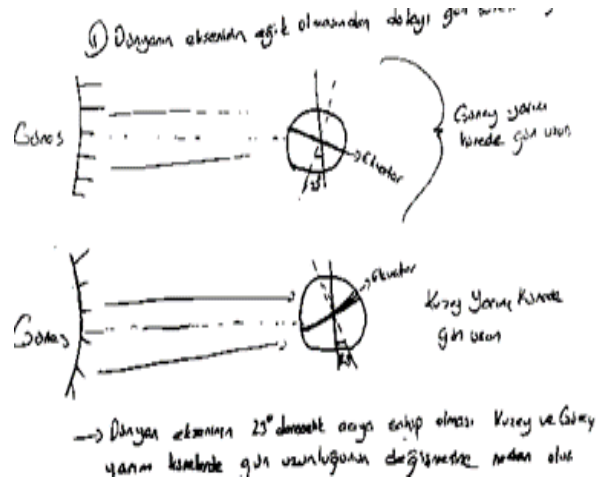 ① Dünyanın ekseninin eğik olmasından dolayı gün
Güneş
Ekvator
23°
Güney yarım
kürede gün uzun
Güneş
Ekvator
23°
Kuzey Yarım Kürede
gün uzun
→ Dünyan ekseninin 23° derecelik açıya sahip olması Kuzey ve Güney
yarım kürelerde gün uzunluğunun değişmesine neden olur